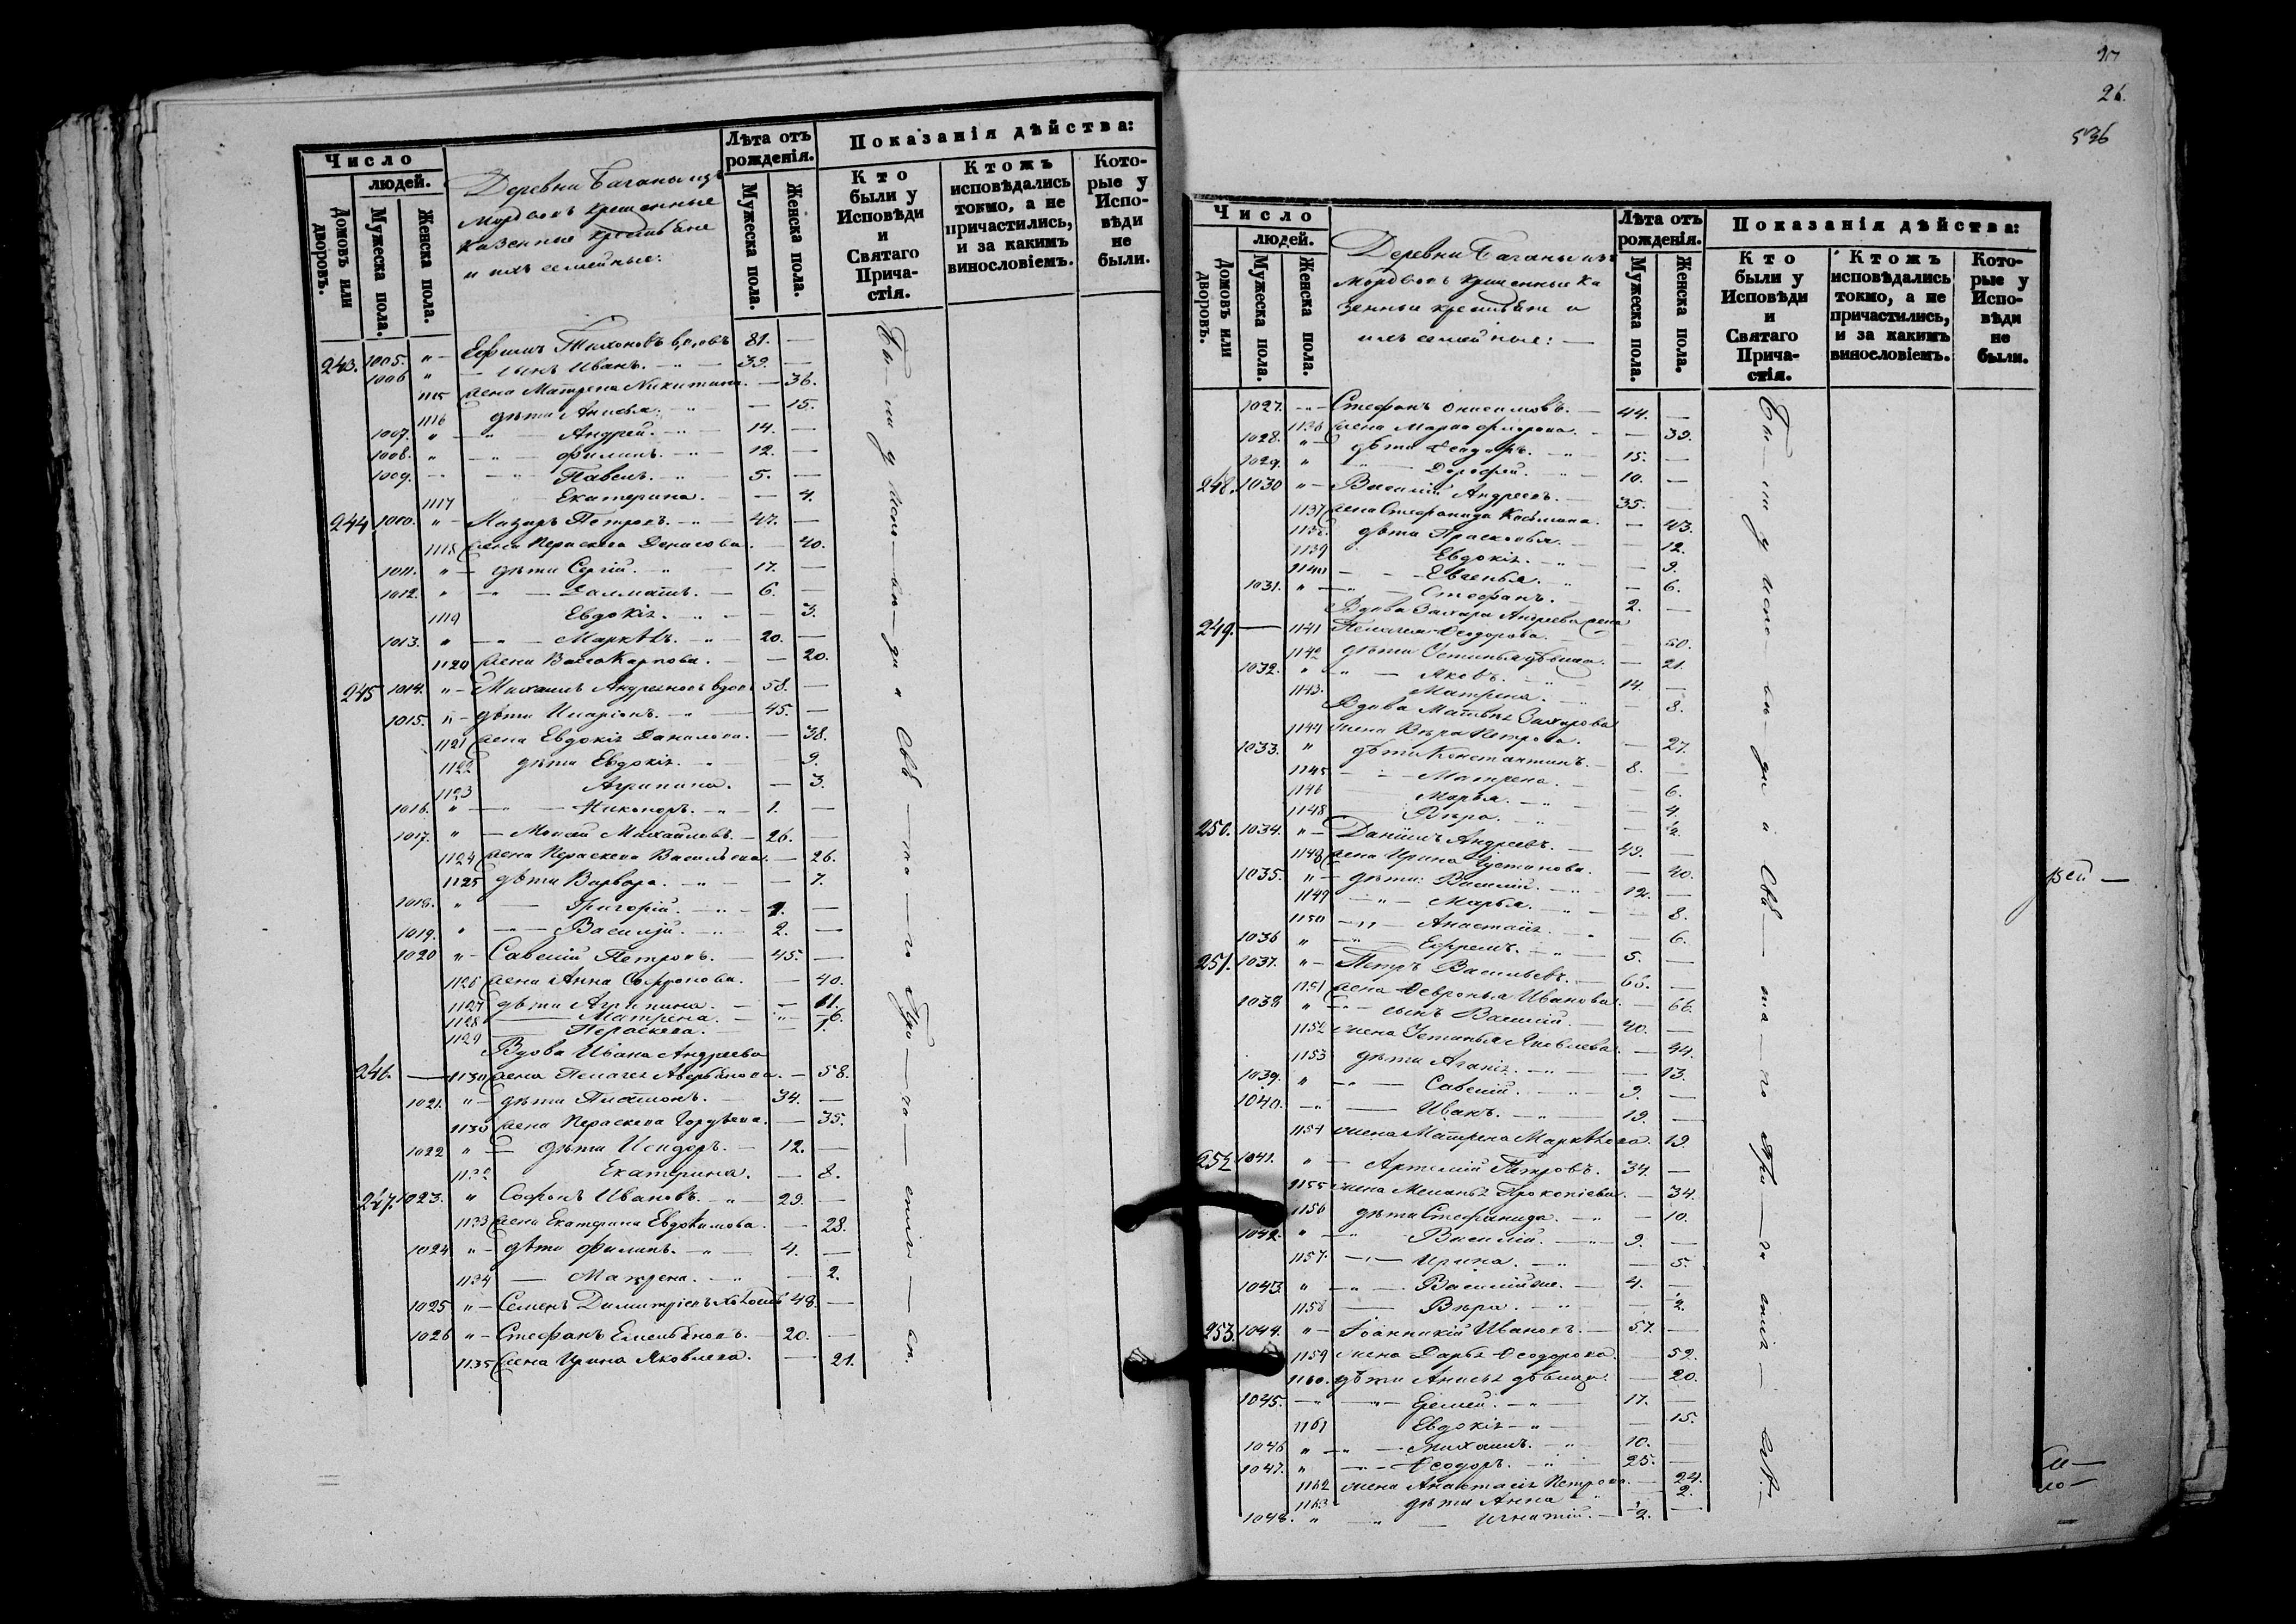 Число
людей.
Домовъ или дворовъ.
Мужеска пола.
Женска пола.
Деревни Баганы изъ
мордвовъ крещенные
казенные крестьяне
и ихъ семейные:
Лѣта отъ рожденія.
Мужеска пола.
Женска пола.
Показанія дѣйства:
Кто были у Исповѣди и Святаго Причастія.
Ктожъ исповѣдались токмо, а не причастились, и за какимъ винословіемъ.
Которые у Исповѣди не были.
243. 1005. " Ефимъ Тихоновъ вдовъ 81. —
1006 " сынъ Иванъ. 39. —
1115 жена Матрена Никитина. — 36.
1116 дѣти Анисья. — 15.
1007. " Андрей. 14. —
1008. " Филипъ. 12. —
1009. Павелъ. 5. —
1117 Екатерина. — 4.
244. 1010. " Назаръ Петровъ. 47. —
1118 жена Пераскева Денисова. — 40.
1011. " дѣти Сергій. 17. —
1012. " Далматъ. 6. —
1119 Евдокія. — 3.
1013. " Маркѣлъ. 20. —
1120 жена Васса Карпова. — 20.
245 1014. " Михаилъ Андреяновъ вдовъ 58. —
1015. " дѣти Иларіонъ. 45. —
1121 жена Евдокія Данилова. — 38.
1122 дѣти Евдокія. — 9.
1123 Агрипина. — 3.
1016. " Никоноръ. 1. —
1017. " Моисей Михайловъ. 26. —
1124 жена Пераскева Васильева. — 26.
1125 дѣти Варвара. — 7.
1018. " Григорій. —
1019. " Василій. 2. —
1020 " Савелій Петровъ. 45. —
1126 жена Анна Софронова. — 40.
1127 дѣти Агрипина. — 11.
1128 Матрена. " 6.
1129 Пераскева. — 1.
Вдова Ивана Андреева
246. — 1130 жена Пелагея Аверьянова. — 58.
1021. " дѣти Платонъ. 34. —
1130 жена Пераскева Гордѣева. — 35.
1022 " дѣти Исидоръ. 12. —
Екатерина. — 8.
247. 1023. " Софронъ Ивановъ. 29. —
1133 жена Екатерина Евдокимова. — 28.
1024 " дѣти Филипъ. 4. —
1134 Матрена. — 2.
1025 " Семенъ Димитріевъ 48. —
1026 " Стефанъ Емельяновъ. 20. —
1135 жена Ирина Яковлева. — 21.
Бы — ли у испо — вѣ — ди и Свя — та — го При — ча — стія — вси.
26.
536
Число
людей.
Домовъ или дворовъ.
Мужеска пола.
Женска пола.
Деревни Баганы изъ
мордвовъ крещенные ка
зенные крестьяне и
ихъ семейные:
Лѣта отъ рожденія.
Мужеска пола.
Женска пола.
Показанія дѣйства:
Кто были у Исповѣди и Святаго Причастія.
Ктожъ исповѣдались токмо, а не причастились, и за какимъ винословіемъ.
Которые у Исповѣди не были.
1027. Стефанъ Онисимовъ. 44. —
1136 жена Марѳа Фролова. — 39.
1028. " дѣти Ѳеодоръ. 15. —
1029. " Дорофей. 10. —
248. 1030 " Василій Андреевъ. 35. —
1137 жена Стефанида Козьмина. — 43.
1138. дѣти Прасковья. — 12.
1139 Евдокія. — 9.
1140 Евгенья. — 6.
1031. " Стефанъ. 2. —
Вдова Захара Андреева жена
249. — 1141 Пелагея Ѳеодорова. — 50.
1142 дѣти Устинья дѣвица. — 21.
1032. " Яковъ. 14. —
1143. Матрена. — 8.
Вдова Матвѣя Захарова
1144 жена Вѣра Петрова. — 27.
1033. " дѣти Константинъ. 8. —
1145 Матрена. — 6.
1146 Марья. — 4.
1148 Вѣра. — ½.
250. 1034. " Даніилъ Андреевъ. 49. —
1148 жена Ирина Густинова. — 40.
1035. " дѣти: Василій. 12. —
1149 Марья. — 8.
1150 Анастасія. — 6.
1036 " Ефремъ. 5. —
251. 1037. " Петръ Васильевъ. 66. —
1151 жена Ѳевронья Иванова. — 66.
1038 " сынъ Василій. 40. —
1152 жена Устинья Яковлева. — 44.
1153 дѣти Агапія. — 13.
1039. " Савелій. 9. —
1040. Иванъ. 19. —
1154 жена Матрена Маркѣлова. 19
252 1041. " Артемій Петровъ. 34. —
1155 жена Меланья Прокопіева. — 34.
1156 дѣти Стефанида. — 10.
1042. " Василій. 9. —
1157. Ирина. — 5.
1043. " Василій же. 4. —
1158 Вѣра. — ½.
253. 1044. " Іоанникій Ивановъ. 57. —
1159 жена Дарья Ѳеодорова. — 52.
1160. дѣти Анисья дѣвица. — 20.
1045. Еремей. 17. —
1161 Евдокія — 15.
1046 " Михаилъ. 10. —
1047. " Ѳеодоръ. 25. —
1162 жена Анастасія Петрова. — 24.
1163 дѣти Анна — 2.
1048. " Игнатій. ½. —
Бы — ли у испо — вѣ — ди и Свя — та — го При — ча — стія — вси.
рей —